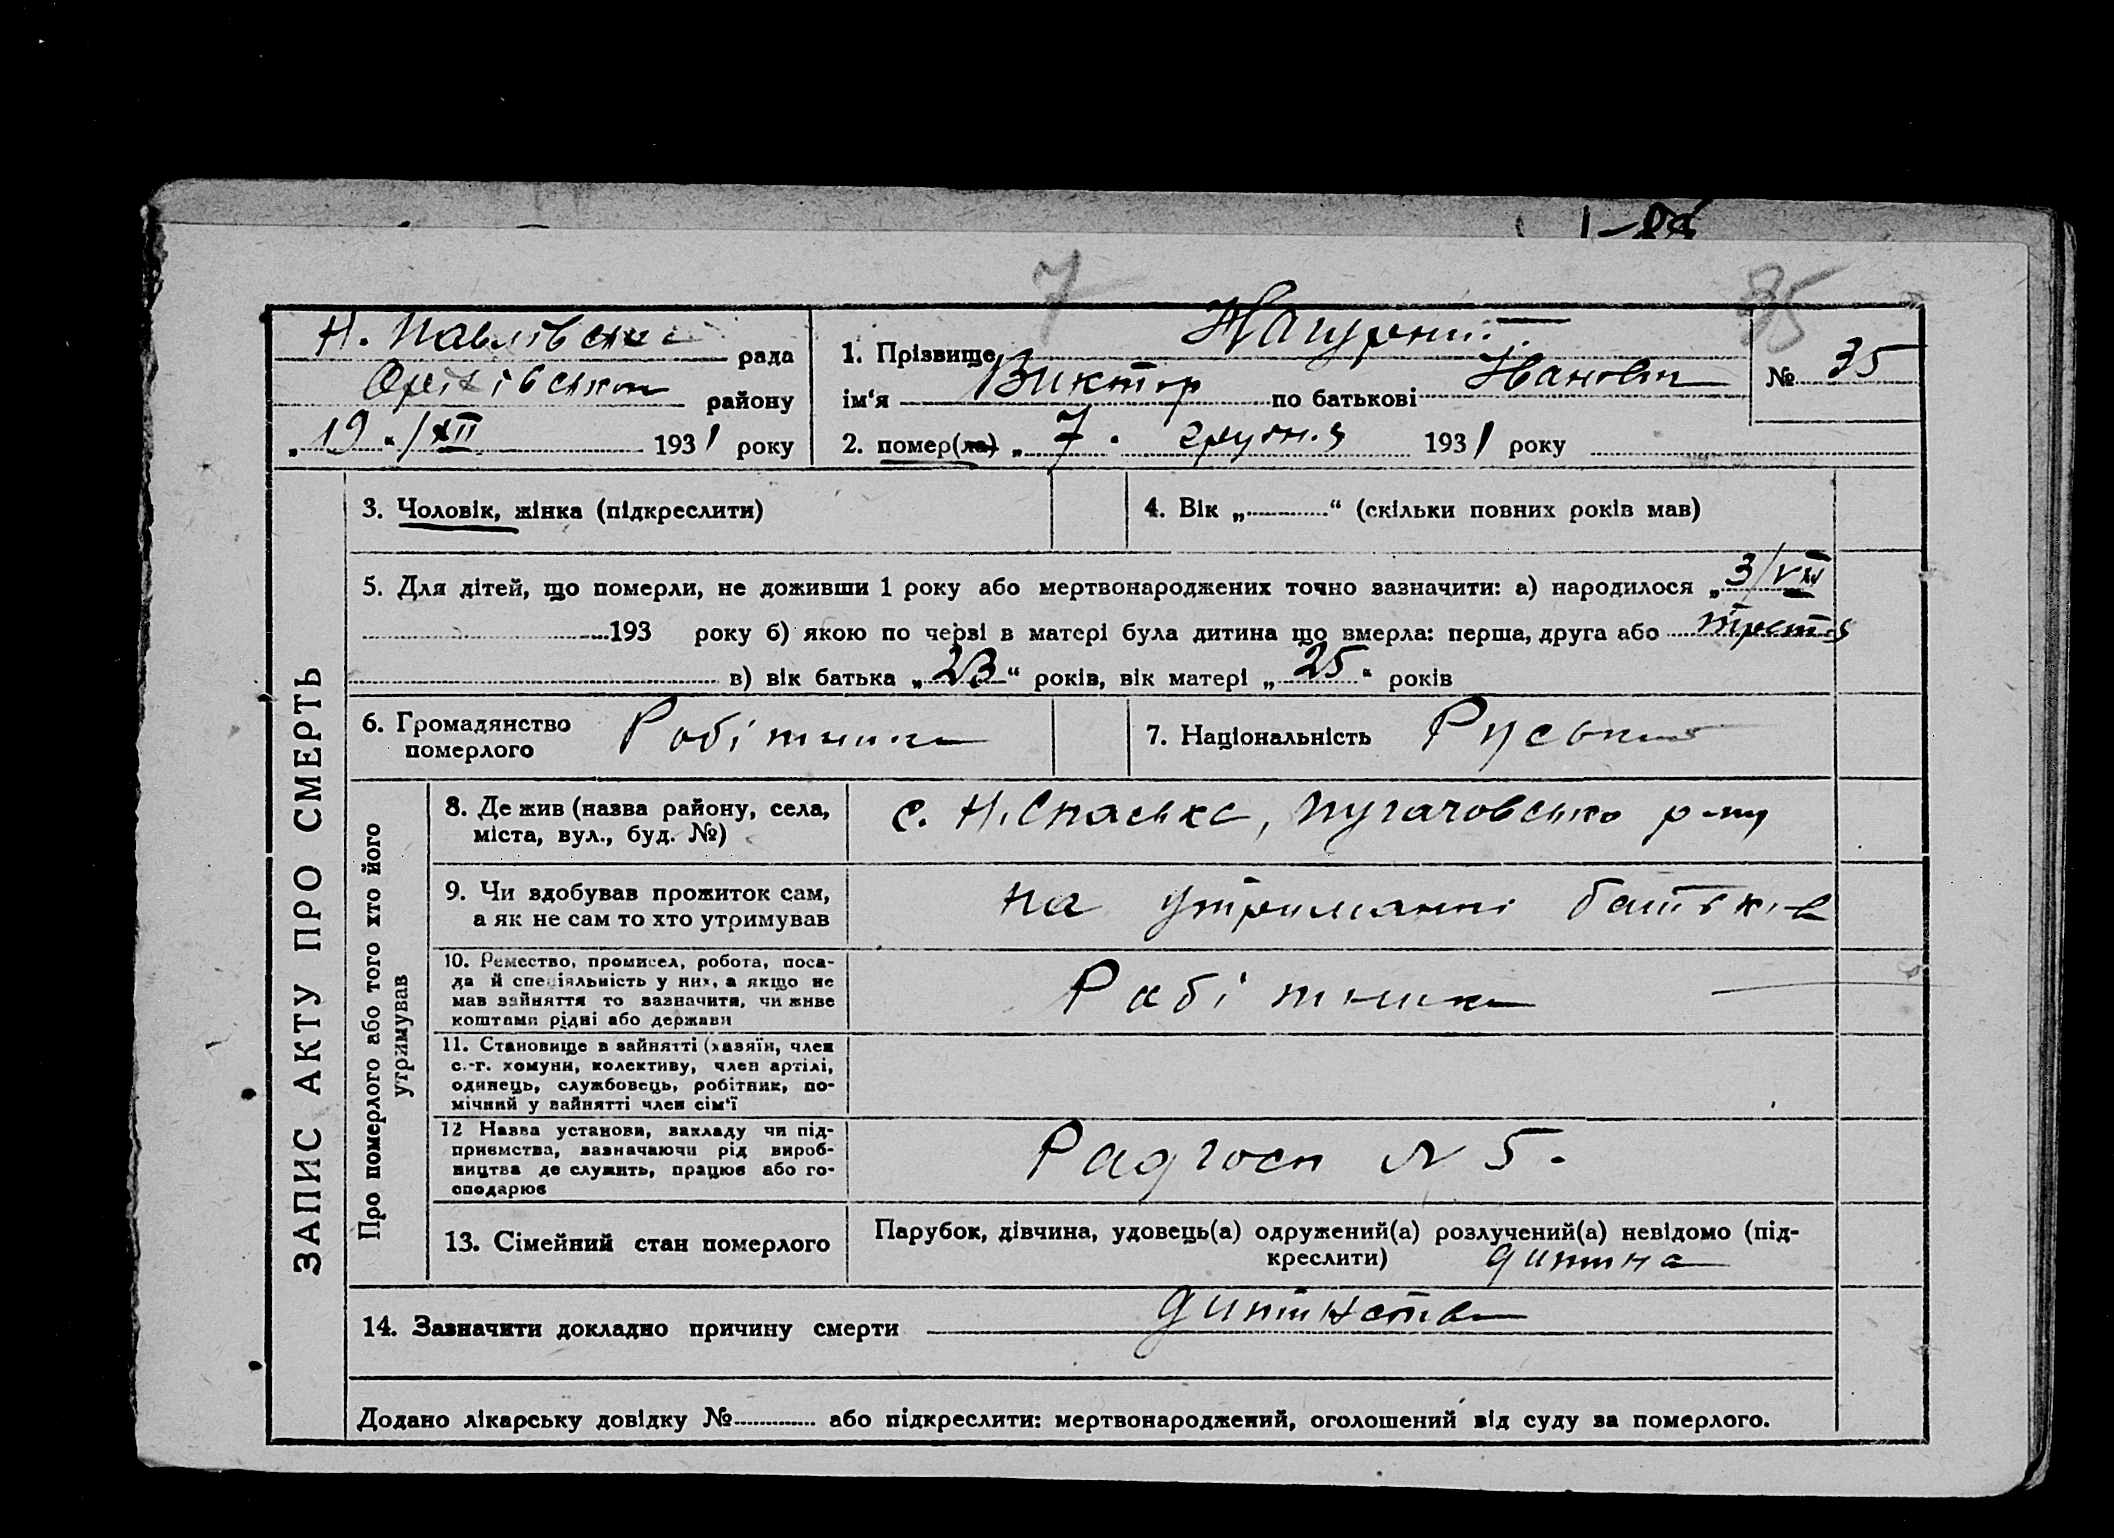 7
35
Н. Павлівська рада
Оріхівського району
„19“/XII 1931 року
1. Прізвище
ім‘я Виктор по батькові Иванович
№ 35
2. помер(ла) „7“ грудня 1931 року
ЗАПИС АКТУ ПРО СМЕРТЬ
3. Чоловік, жінка (підкреслити)
4. Вік „ “ (скільки повних років мав)
5. Для дітей, що померли, не доживши 1 року або мертвонароджених точно зазначити: а) народилося „3/VII
193 року б) якою по черзі в матері була дитина що вмерла: перша, друга або третя
в) вік батька „23“ років, вік матері „25“ років
6. Громадянство
померлого
Робітник
7. Національність Руський
Про померлого або того хто його
утримував
8. Де жив (назва району, села,
міста, вул., буд. №)
с. Н. Спаське, Пугачовсько р-ну
9. Чи вдобував прожиток сам,
а як не сам то хто утримував
на утриманні батьків
10. Ремество, промисел, робота, поса-
да й спеціяльність у них, а якщо не
мав зайняття то зазначити, чи живе
коштами рідні або держави
Робітник
11. Становище в зайнятті (хазяїн, член
с.-г. комуни, колективу, член артілі,
одинець, службовець, робітник, по-
мічний у зайнятті член сім‘ї
12 Назва установи, закладу чи під-
приємства, зазначаючи рід вироб-
ництва де служить, працює або го-
сподарює
Радгосп № 5.
13. Сімейний стан померлого
Парубок, дівчина, удовець(а) одружений(а) розлучений(а) невідомо (під-
креслити) дитина
14. Зазначити докладно причину смерти
Додано лікарську довідку № або підкреслити: мертвонароджений, оголошений від суду за померлого.